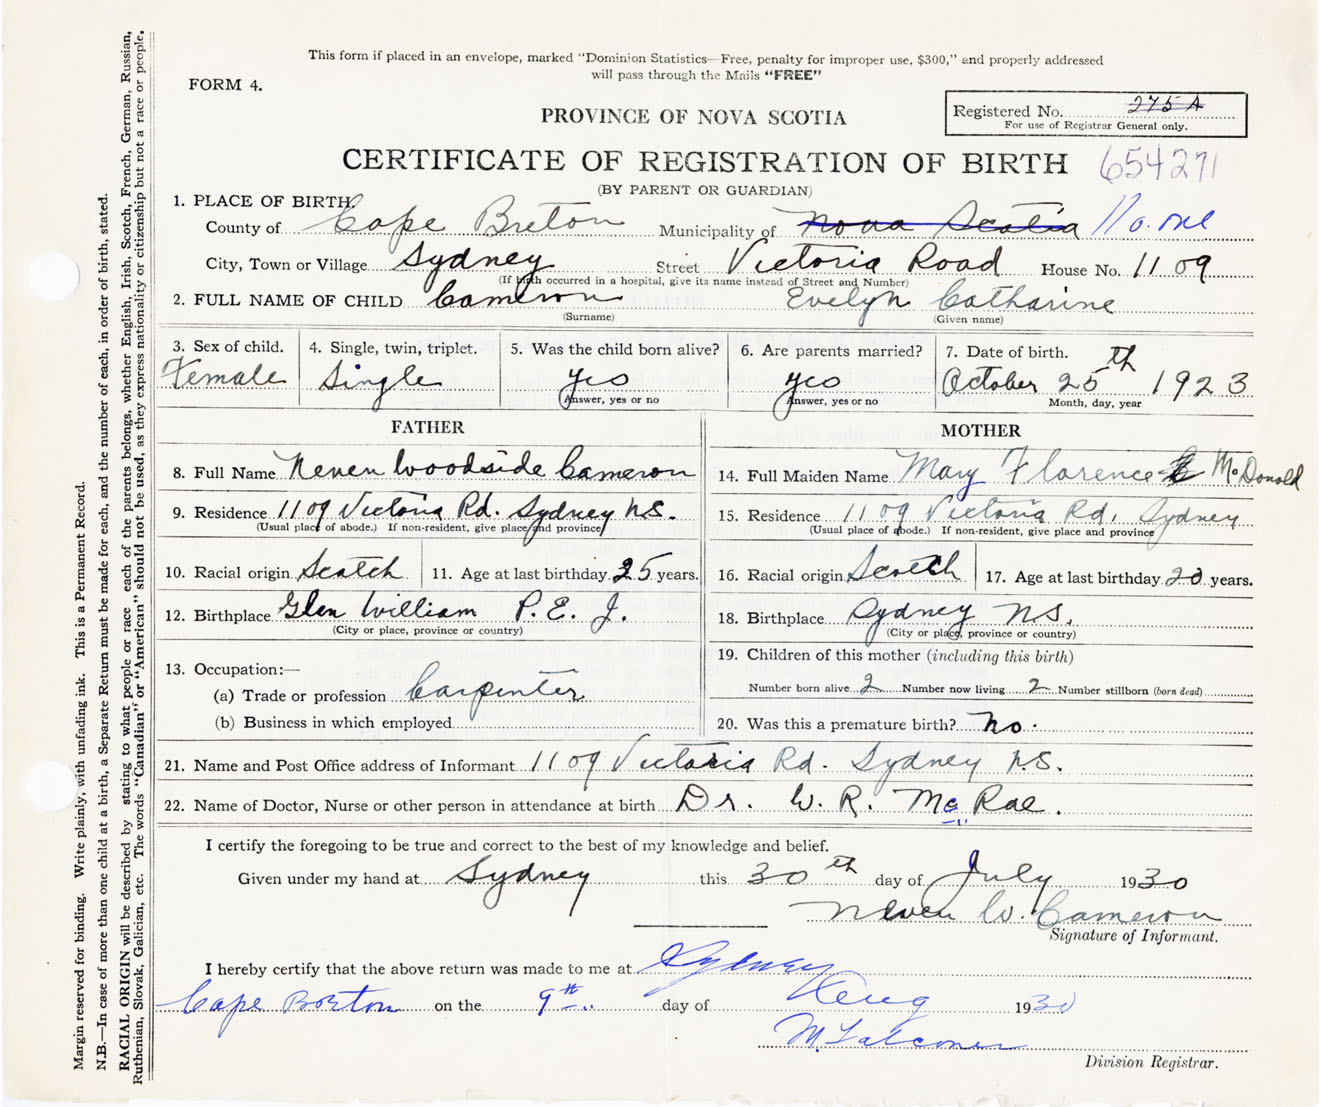 This form if placed in an envelope, marked "Dominion Statistics—Free, penalty for improper use, $300," and properly addressed
will pass through the Mails "FREE"
FORM 4.
PROVINCE OF NOVA SCOTIA
Registered No. 275 A
For use of Registrar General only.
CERTIFICATE OF REGISTRATION OF BIRTH 654271
(BY PARENT OR GUARDIAN)
1. PLACE OF BIRTH.
County of Cape Breton Municipality of Nova Scotia
City, Town or Village Sydney Street Victoria Road House No. 1109
(If birth occurred in a hospital, give its name instead of Street and Number)
2. FULL NAME OF CHILD Cameron Evelyn Catharine
(Surname) (Given name)
3. Sex of child. 4. Single, twin, triplet. 5. Was the child born alive? 6. Are parents married? 7. Date of birth.
Female Single yes yes October 25th 1923
Answer, yes or no Answer, yes or no Month, day, year
FATHER MOTHER
8. Full Name Neven Woodside Cameron 14. Full Maiden Name Mary Florence McDonald
9. Residence 1109 Victoria Rd. Sydney N.S. 15. Residence 1109 Victoria Rd, Sydney
(Usual place of abode.) If non-resident, give place and province (Usual place of abode.) If non-resident, give place and province
10. Racial origin Scotch 11. Age at last birthday 25 years. 16. Racial origin Scotch 17. Age at last birthday years.
12. Birthplace Glen William P. E. I. 18. Birthplace Sydney N.S.
(City or place, province or country) (City or place, province or country)
13. Occupation:—
(a) Trade or profession Carpenter
(b) Business in which employed
19. Children of this mother (including this birth)
Number born alive 2 Number now living 2 Number stillborn (born dead)
20. Was this a premature birth? no.
21. Name and Post Office address of Informant 1109 Victoria Rd. Sydney N.S.
22. Name of Doctor, Nurse or other person in attendance at birth Dr. W. R. McRae.
I certify the foregoing to be true and correct to the best of my knowledge and belief.
Given under my hand at Sydney this 30th day of July 1930
Neven W. Cameron
Signature of Informant.
I hereby certify that the above return was made to me at Sydney
Cape Breton on the 9th day of Aug 1930
M. Falconer
Division Registrar.
Margin reserved for binding. Write plainly, with unfading ink. This is a Permanent Record.
N.B.—In case of more than one child at a birth, a Separate Return must be made for each, and the number of each, in order of birth, stated.
RACIAL ORIGIN will be described by stating to what people or race each of the parents belongs, whether English, Irish, Scotch, French, German, Russian,
Ruthenian, Slovak, Galician, etc. The words "Canadian" or "American" should not be used, as they express nationality or citizenship but not a race or people.